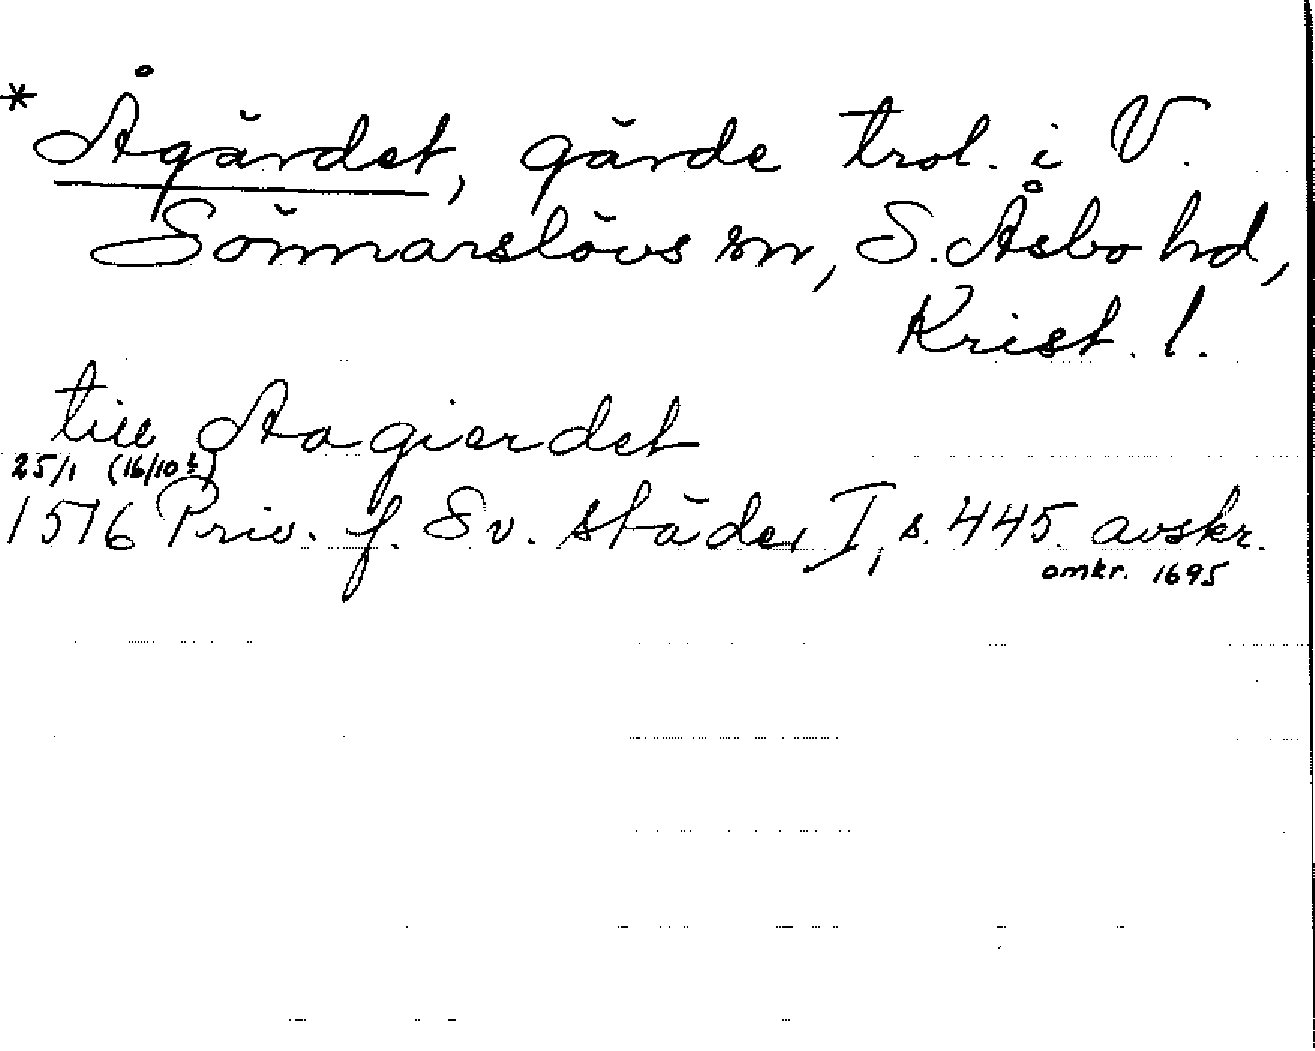 * Ågärdet, gärde trol. i V.
Sönnarslövs sn, S. Åsbo hd,
Krist. l.
till Aagierdet
25/1 (16/10 )
1516 Priv. f. Sv. städer I, s. 445. avskr.
omkr. 1695